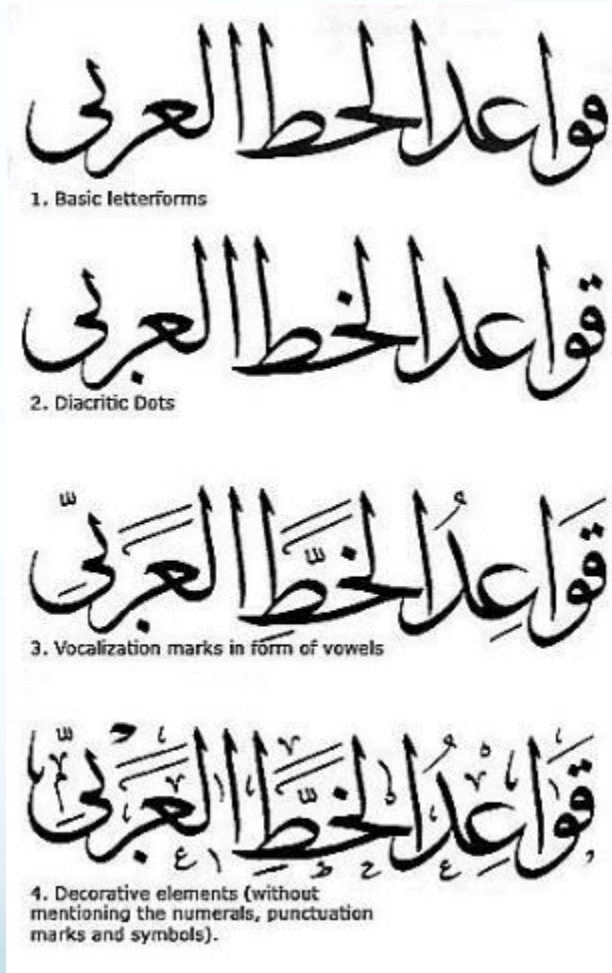 قواعد الخط العربى
1. Basic letterforms
قواعد الخط العربى
2. Diacritic Dots
قَوَاعِدُ الخَطِّ العَرَبِىِّ
3. Vocalization marks in form of vowels
قَوَاعِدُ الخَطِّ العَرَبِىِّ
4. Decorative elements (without
mentioning the numerals, punctuation
marks and symbols).